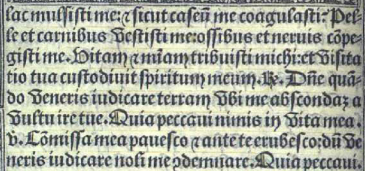 lac mulsisti me: ⁊ sicut caseū me coagulasti? Pel-
le et carnibus vestisti me: ossibus et neruis cōpe-
gisti me. Vitam ⁊ mīam tribuisti michi: et visita
tio tua custodiuit spiritum meum. ℟. Dñe quā-
do veneris iudicare terram vbi me abscondaꝫ a
vultu ire tue. Quia peccaui nimis in vita mea.
v. Cōmissa mea pauesco ⁊ ante te erubesco: dū ve
neris iudicare noli me ↄdemnare. Quia peccaui.